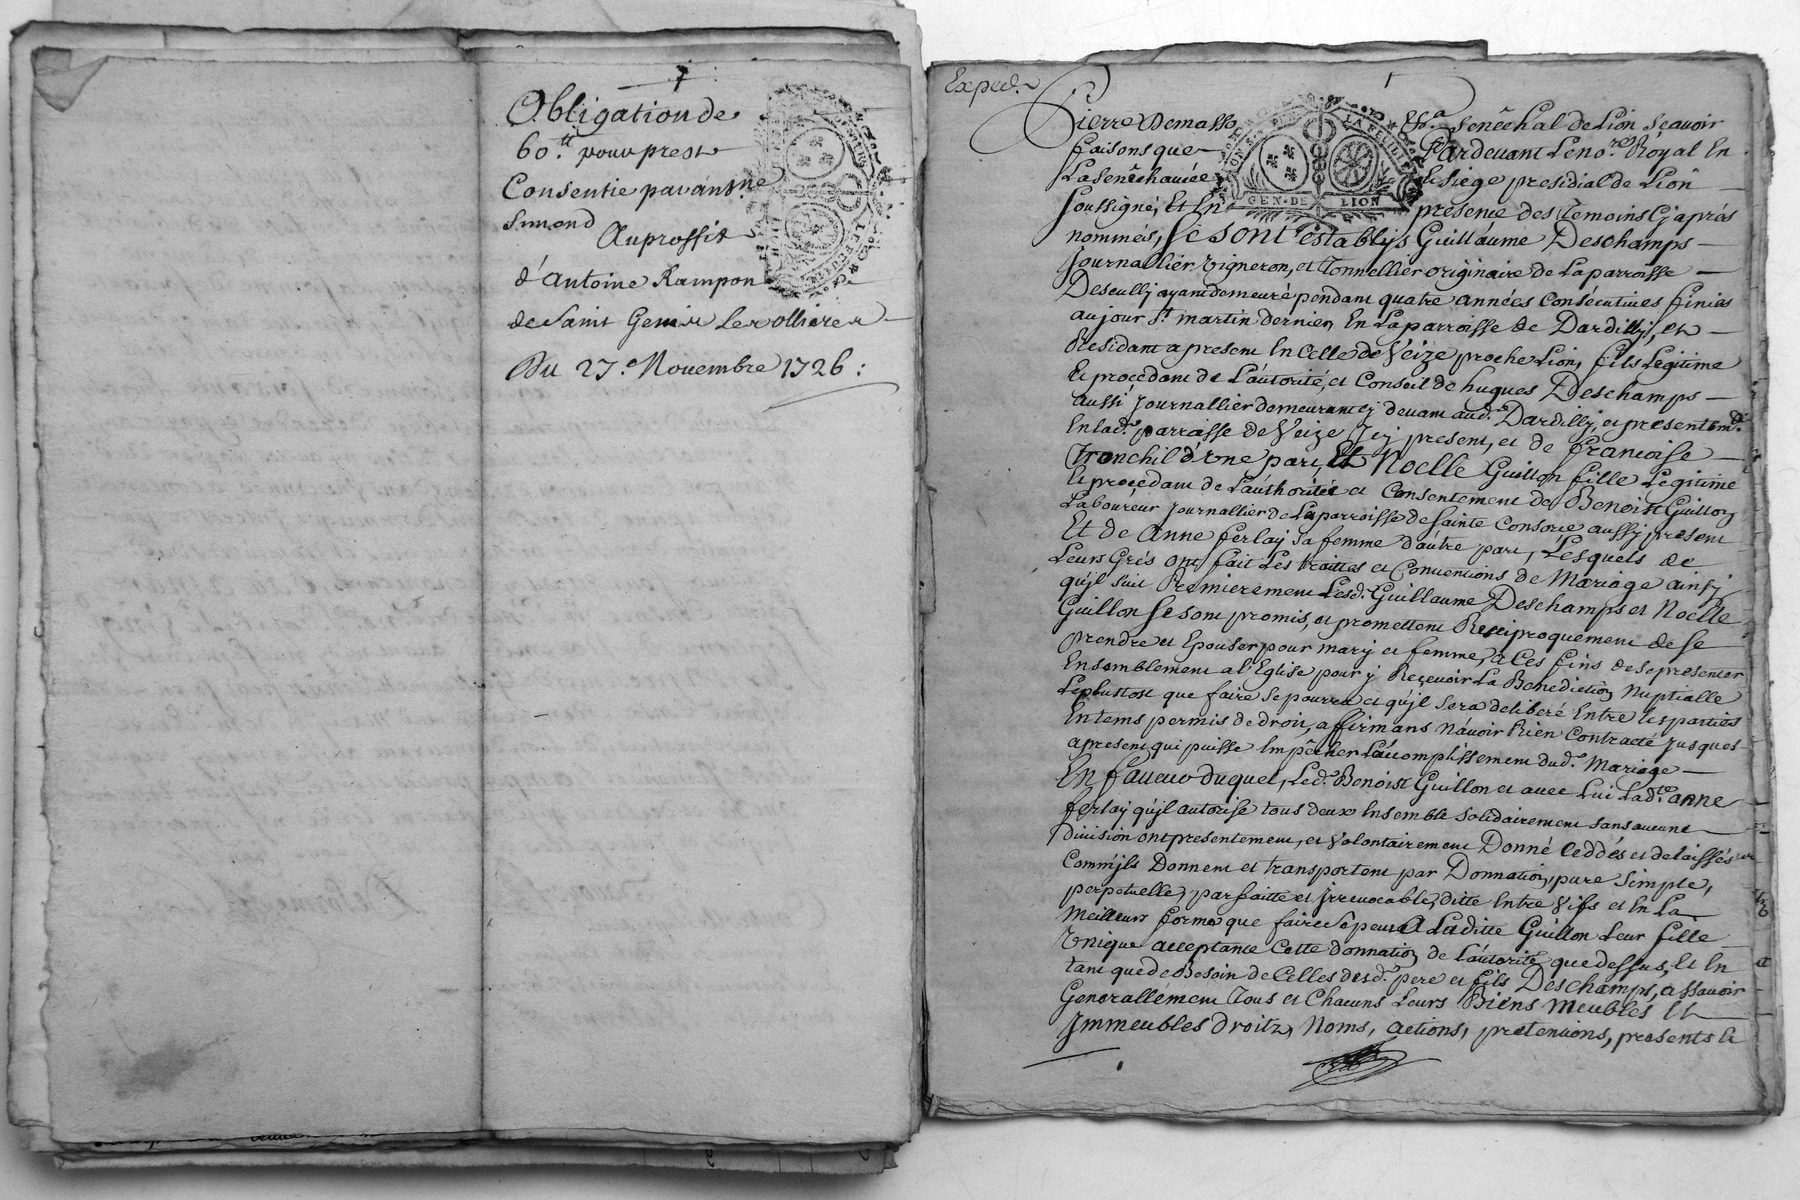 7
Obligation de
60.ᵗᵗ pour prest
Consentie par antne
Simond
Au proffit
d'Antoine Rampon
de Saint Genis Les Ollieres
Du 27.e Novembre 1726 :
Exped.
1
Pierre Demasso Senêchal de Lion Sçavoir
faisons que Pardevant Le no.re Royal En
La Senêchaucée le siège presidial de Lion
soussigné, Et En presence des Temoins Cy après
GEN. DE LION
nommés, Se sont establÿs Guillaume Deschamps
Journallier vigneron, et Tonnellier originaire de La parroisse
Descully ayant demeuré pendant quatre années consécutives finies
au jour St. martin dernier En La parroisse de Dardilly, et
Residant a present En Celle de Veize proche Lion, fils Legitime
et procedant de L'autorité, et Conseil de hugues Deschamps
aussi Journallier demeurant cy devant aud. Dardilly, et presentem.t
En lad. parrasse de Veize Icy present, et de francoise
Tronchil d'vne part, Et Noelle Guillon fille Legitime
et procedant de L'authorité et Consentement de Benoist Guillon
Laboureur Journallier de La parroisse de Sainte Consorce aussy present
Et de Anne ferlay sa femme d'autre part, Lesquels de
Leurs Grés ont fait Les traittes et Conventions de Mariage ainsy
qu'jl suit Premierement Lesd. Guillaume Deschamps et Noelle
Guillon se sont promis, et promettent Reciproquement de se
prendre et Epouser pour mary et femme, a Ces fins de se presenter
Ensemblement a l'Eglise pour y Reçevoir La Benediction Nuptialle
Le plustost que faire se pourra et qu'jl sera deliberé Entre les parties
En tems permis de droit, affirmans n'avoir Rien Contracté jusques
a present qui puisse Impêcher L'accomplissement dud. Mariage
En faveur duquel, Led. Benoist Guillon et avec Lui Lad.te anne
ferlay qu'jl autorise tous deux Ensemble solidairement sans aucune
division ont presentement, et volontairement Donné Ceddés et delaissés
Comm'jls Donnent et transportent par Donnation, pure simple,
perpetuelle, parfaitte et Jrrevocable, ditte Entre Vifs et En La
Meilleurs forme que faire se peut A Laditte Guillon Leur fille
Vnique acceptante Cette donnation de L'autorité que dessus, Et En
tant que de Besoin de Celles desd. pere et fils Deschamps, assavoir
Generallement Tous et Chacuns Leurs Biens Meubles Et
Jmmeubles droits, Noms, actions, pretentions, presents et